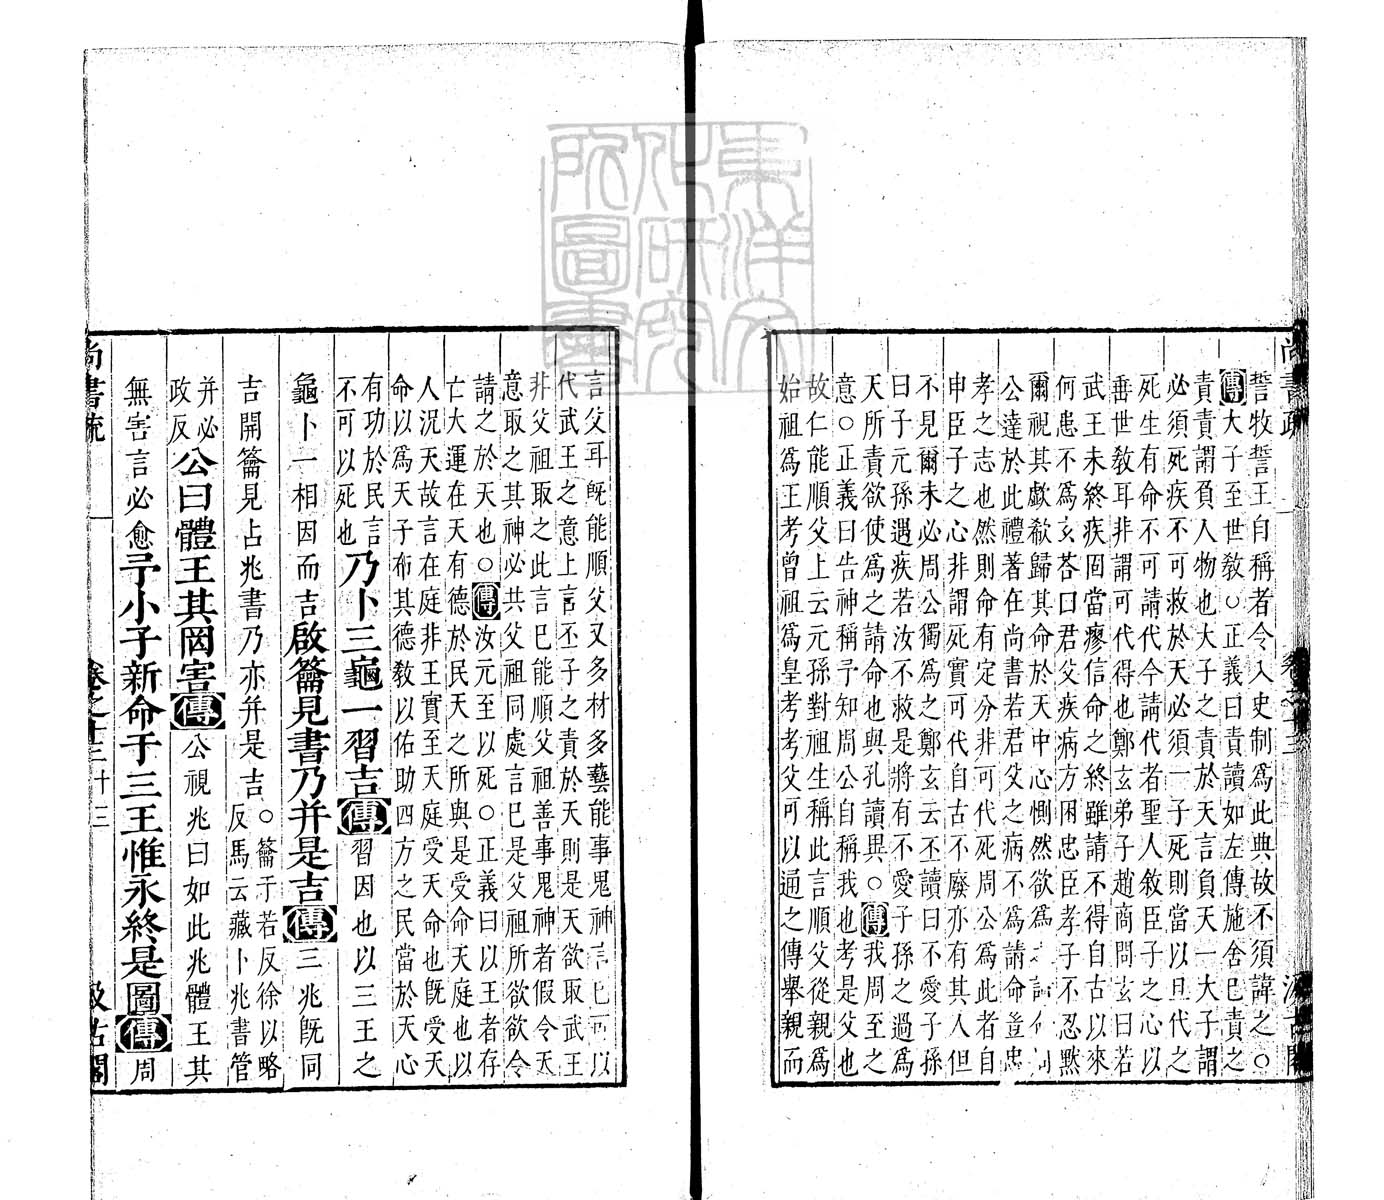 尚書疏　卷之十三　汲古閣
誓牧誓王自稱者令入史制為此典故不須諱之○
傳大子至世敎○正義曰責讀如左傳施舍已責之
責責謂負人物也大子之責於天言負天一大子謂
必須死疾不可救於天必須一子死則當以旦代之
死生有命不可請代今請代者聖人敘臣子之心以
垂世敎耳非謂可代得也鄭玄弟子趙商問玄曰若
武王未終疾固當瘳信命之終雖請不得自古以來
何患不為玄荅曰君父疾病方困忠臣孝子不忍黙
爾視其歔欷歸其命於天中心惻然欲為之請命周
公達於此禮著在尚書若君父之病不為請命豈忠
孝之志也然則命有定分非可代死周公為此者自
申臣子之心非謂死實可代自古不廢亦有其人但
不見爾未必周公獨為之鄭玄云丕讀曰不愛子孫
曰子元孫遇疾若汝不救是將有不愛子孫之過為
天所責欲使為之請命也與孔讀異○傳我周至之
意○正義曰告神稱予知周公自稱我也考是父也
故仁能順父上云元孫對祖生稱此言順父從親為
始祖為王考曾祖為皇考考父可以通之傳舉親而
言父耳旣能順父又多材多藝能事鬼神言已可以
代武王之意上言丕子之責於天則是天欲取武王
非父祖取之此言已能順父祖善事鬼神者假令天
意取之其神必共父祖同處言已是父祖所欲欲令
請之於天也○傳汝元至以死○正義曰以王者存
亡大運在天有德於民天之所與是受命天庭也以
人況天故言在庭非王實至天庭受天命也旣受天
命以為天子布其德敎以佑助四方之民當於天心
有功於民言
不可以死也
乃卜三龜一習吉傳習因也以三王之
龜卜一相因而吉啟籥見書乃并是吉傳三兆旣同
吉開籥見占兆書乃亦并是吉
○籥于若反徐以略
反馬云藏卜兆書管
并必
政反
公曰體王其罔害傳公視兆曰如此兆體王其
無害言必愈予小子新命于三王惟永終是圖傳周
尚書疏　卷之十三　十三　汲古閣
東洋文化研究所圖書